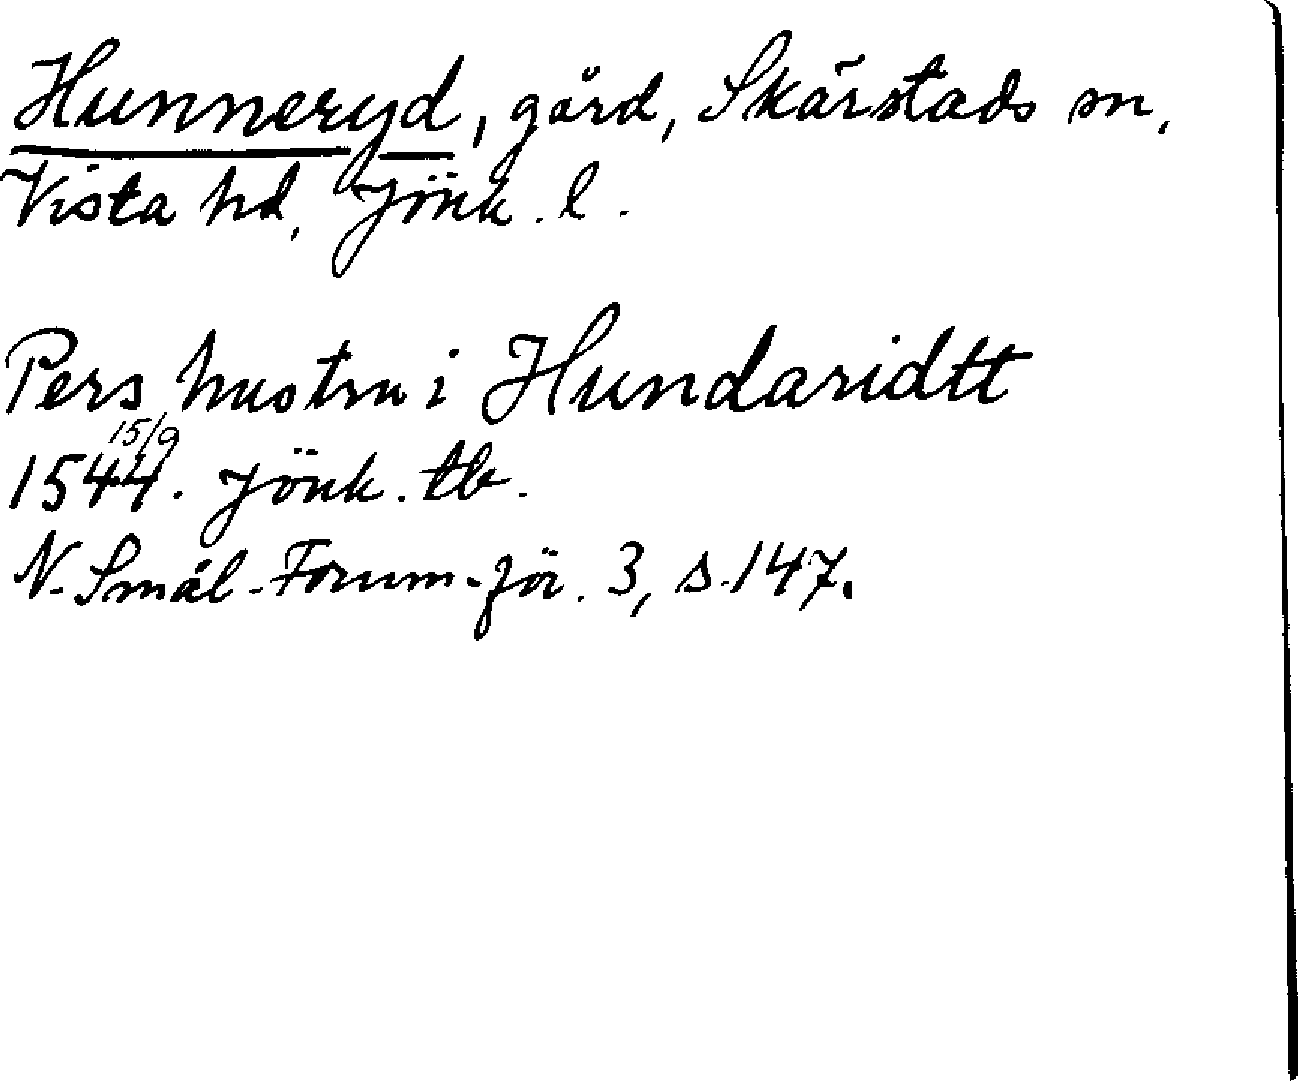 Hunneryd, gård, Skärstads sn,
Vista hd, Jönk. l.
Pers hustru i Hundaridtt
15/9
1544. Jönk. tb.
N. Smål. Fornm. för. 3, s. 147.